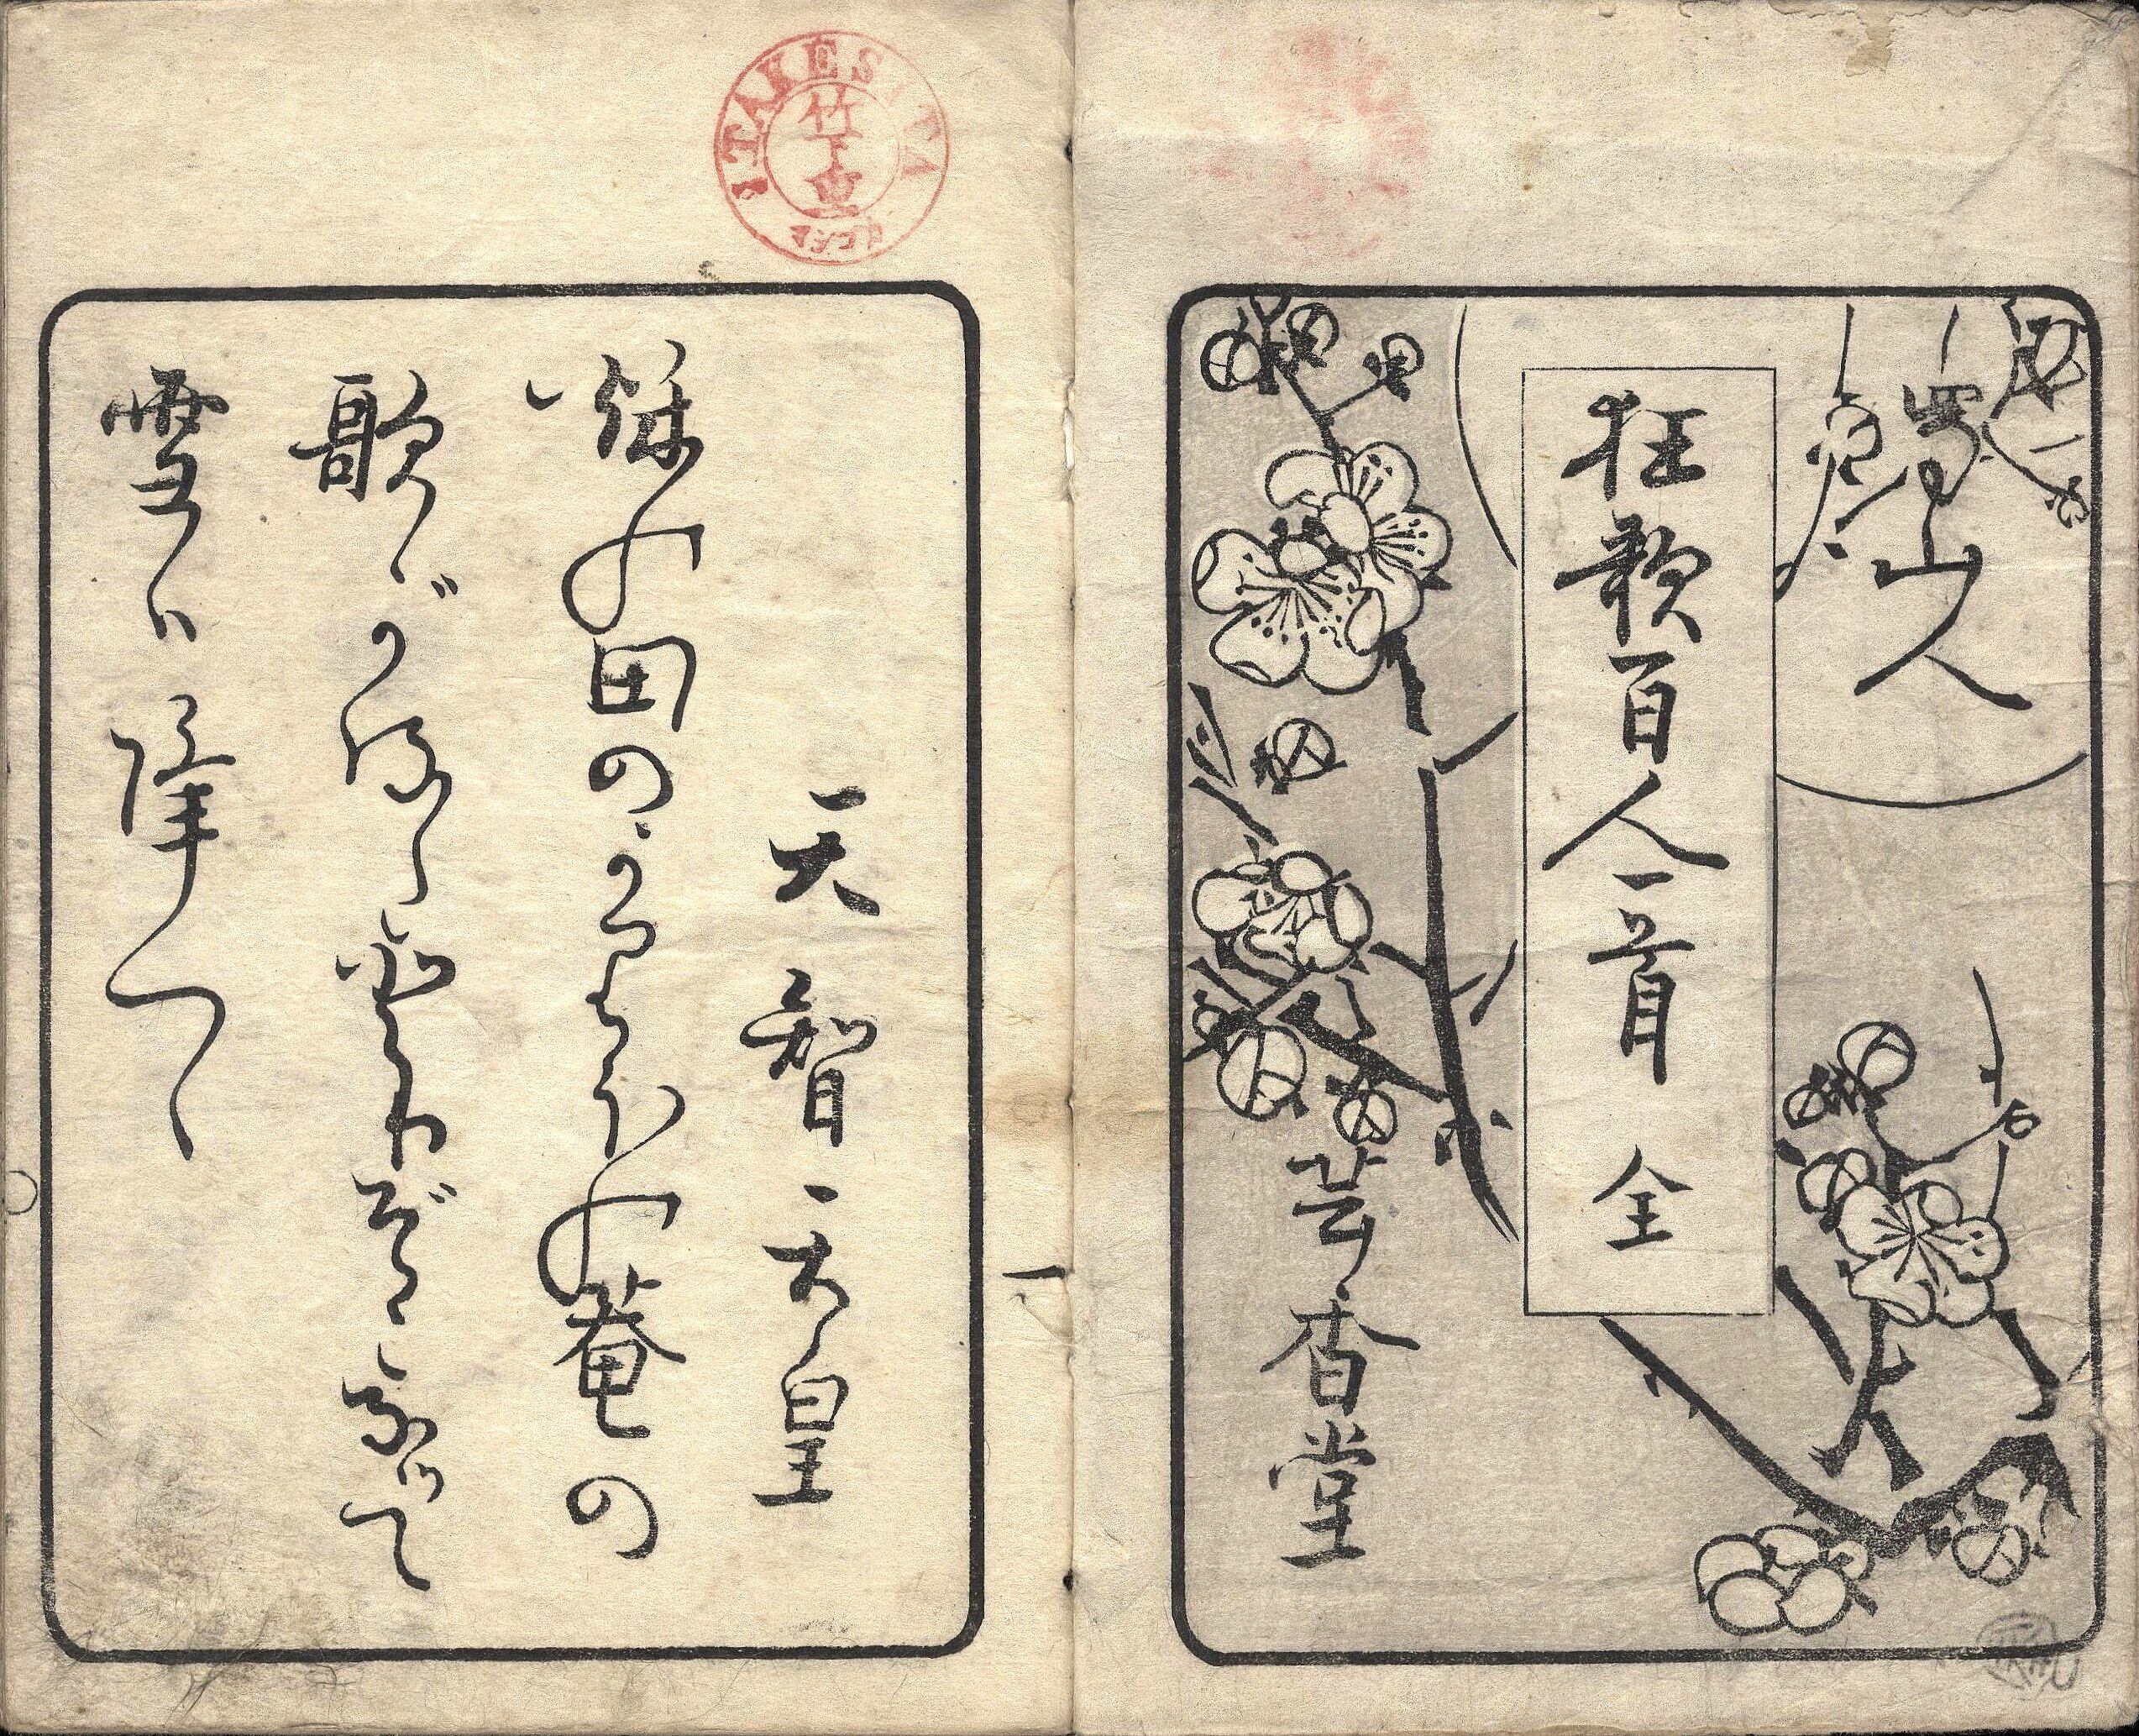 蜀山人
狂歌百人一首 全
芸香堂
一
TAKESITA
竹下重
天智天皇
秋の田のかりほの庵の
歌がるたとりぞこなつて
雪は降つゝ